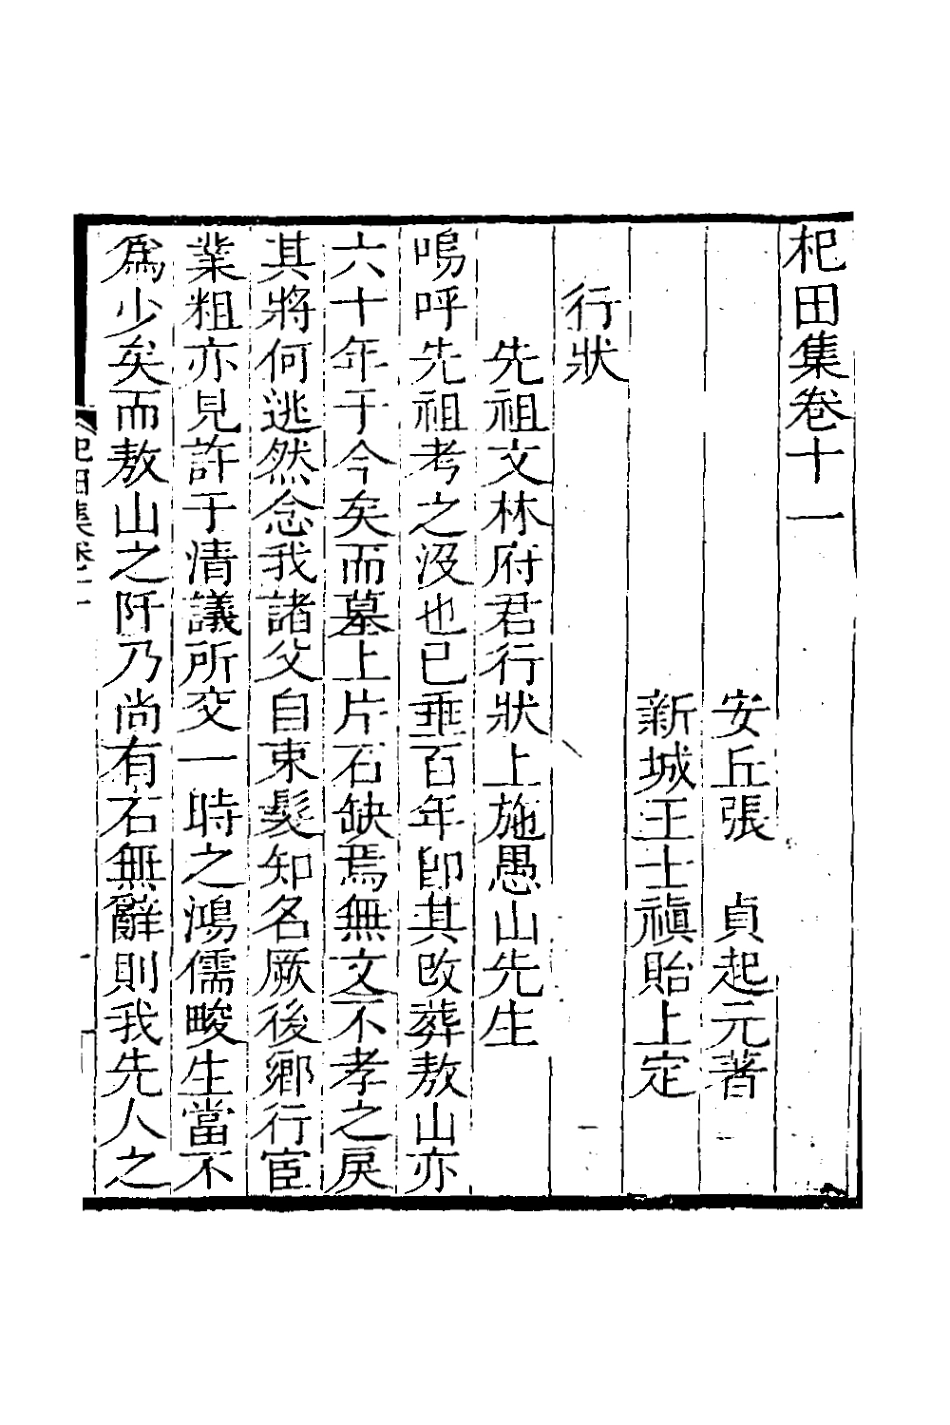 杞田集卷十一
安丘張　貞起元著
新城王士禛貽上定
行狀
先祖文林府君行狀上施愚山先生
嗚呼先祖考之沒也已垂百年卽其改葬敖山亦
六十年于今矣而墓上片石缺焉無文不孝之戾
其將何逃然念我諸父自束髮知名厥後鄉行宦
業粗亦見許于清議所交一時之鴻儒畯生當不
爲少矣而敖山之阡乃尚有石無辭則我先人之
杞田集卷十一